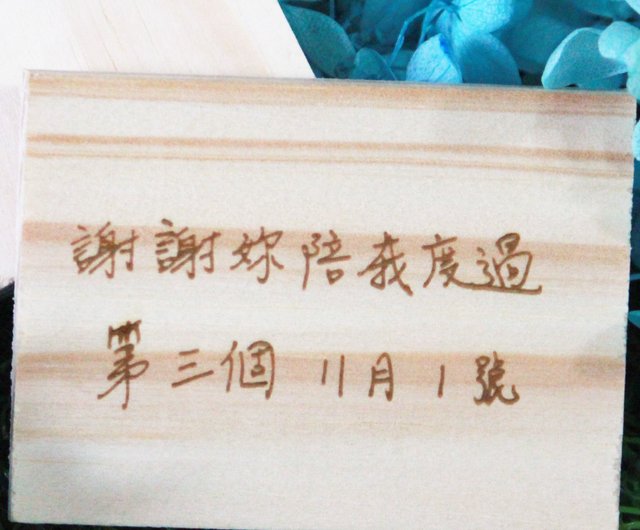 謝謝妳陪我度過
第三個 11月1號